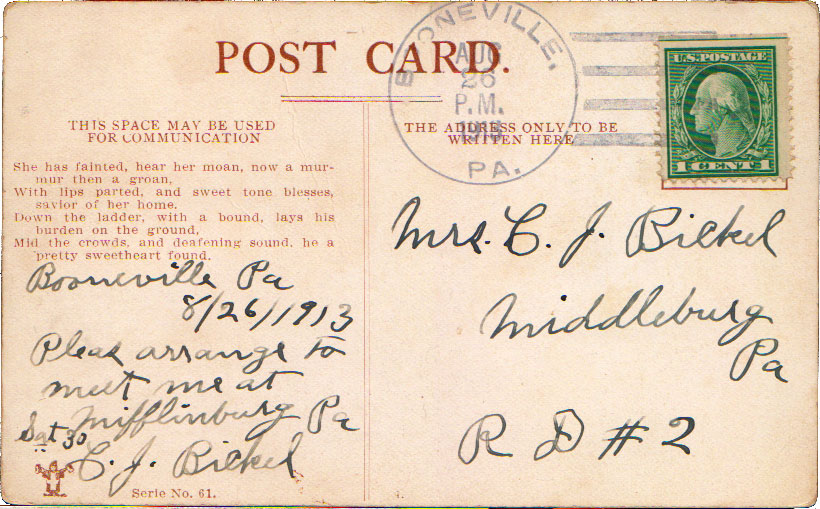 POST CARD.
BOONEVILLE,
AUG
26
P.M.
1913
PA.
U.S. POSTAGE
1 CENT 1
THIS SPACE MAY BE USED
FOR COMMUNICATION
THE ADDRESS ONLY TO BE
WRITTEN HERE
She has fainted, hear her moan, now a mur-
mur then a groan,
With lips parted, and sweet tone blesses,
savior of her home.
Down the ladder, with a bound, lays his
burden on the ground,
Mid the crowds, and deafening sound, he a
pretty sweetheart found.
Booneville Pa
8/26/1913
Pleas arrange to
meet me at
Mifflinburg Pa
Sat 30
C. J. Bickel
Serie No. 61.
Mrs. C. J. Bickel
Middleburg
Pa
R D # 2